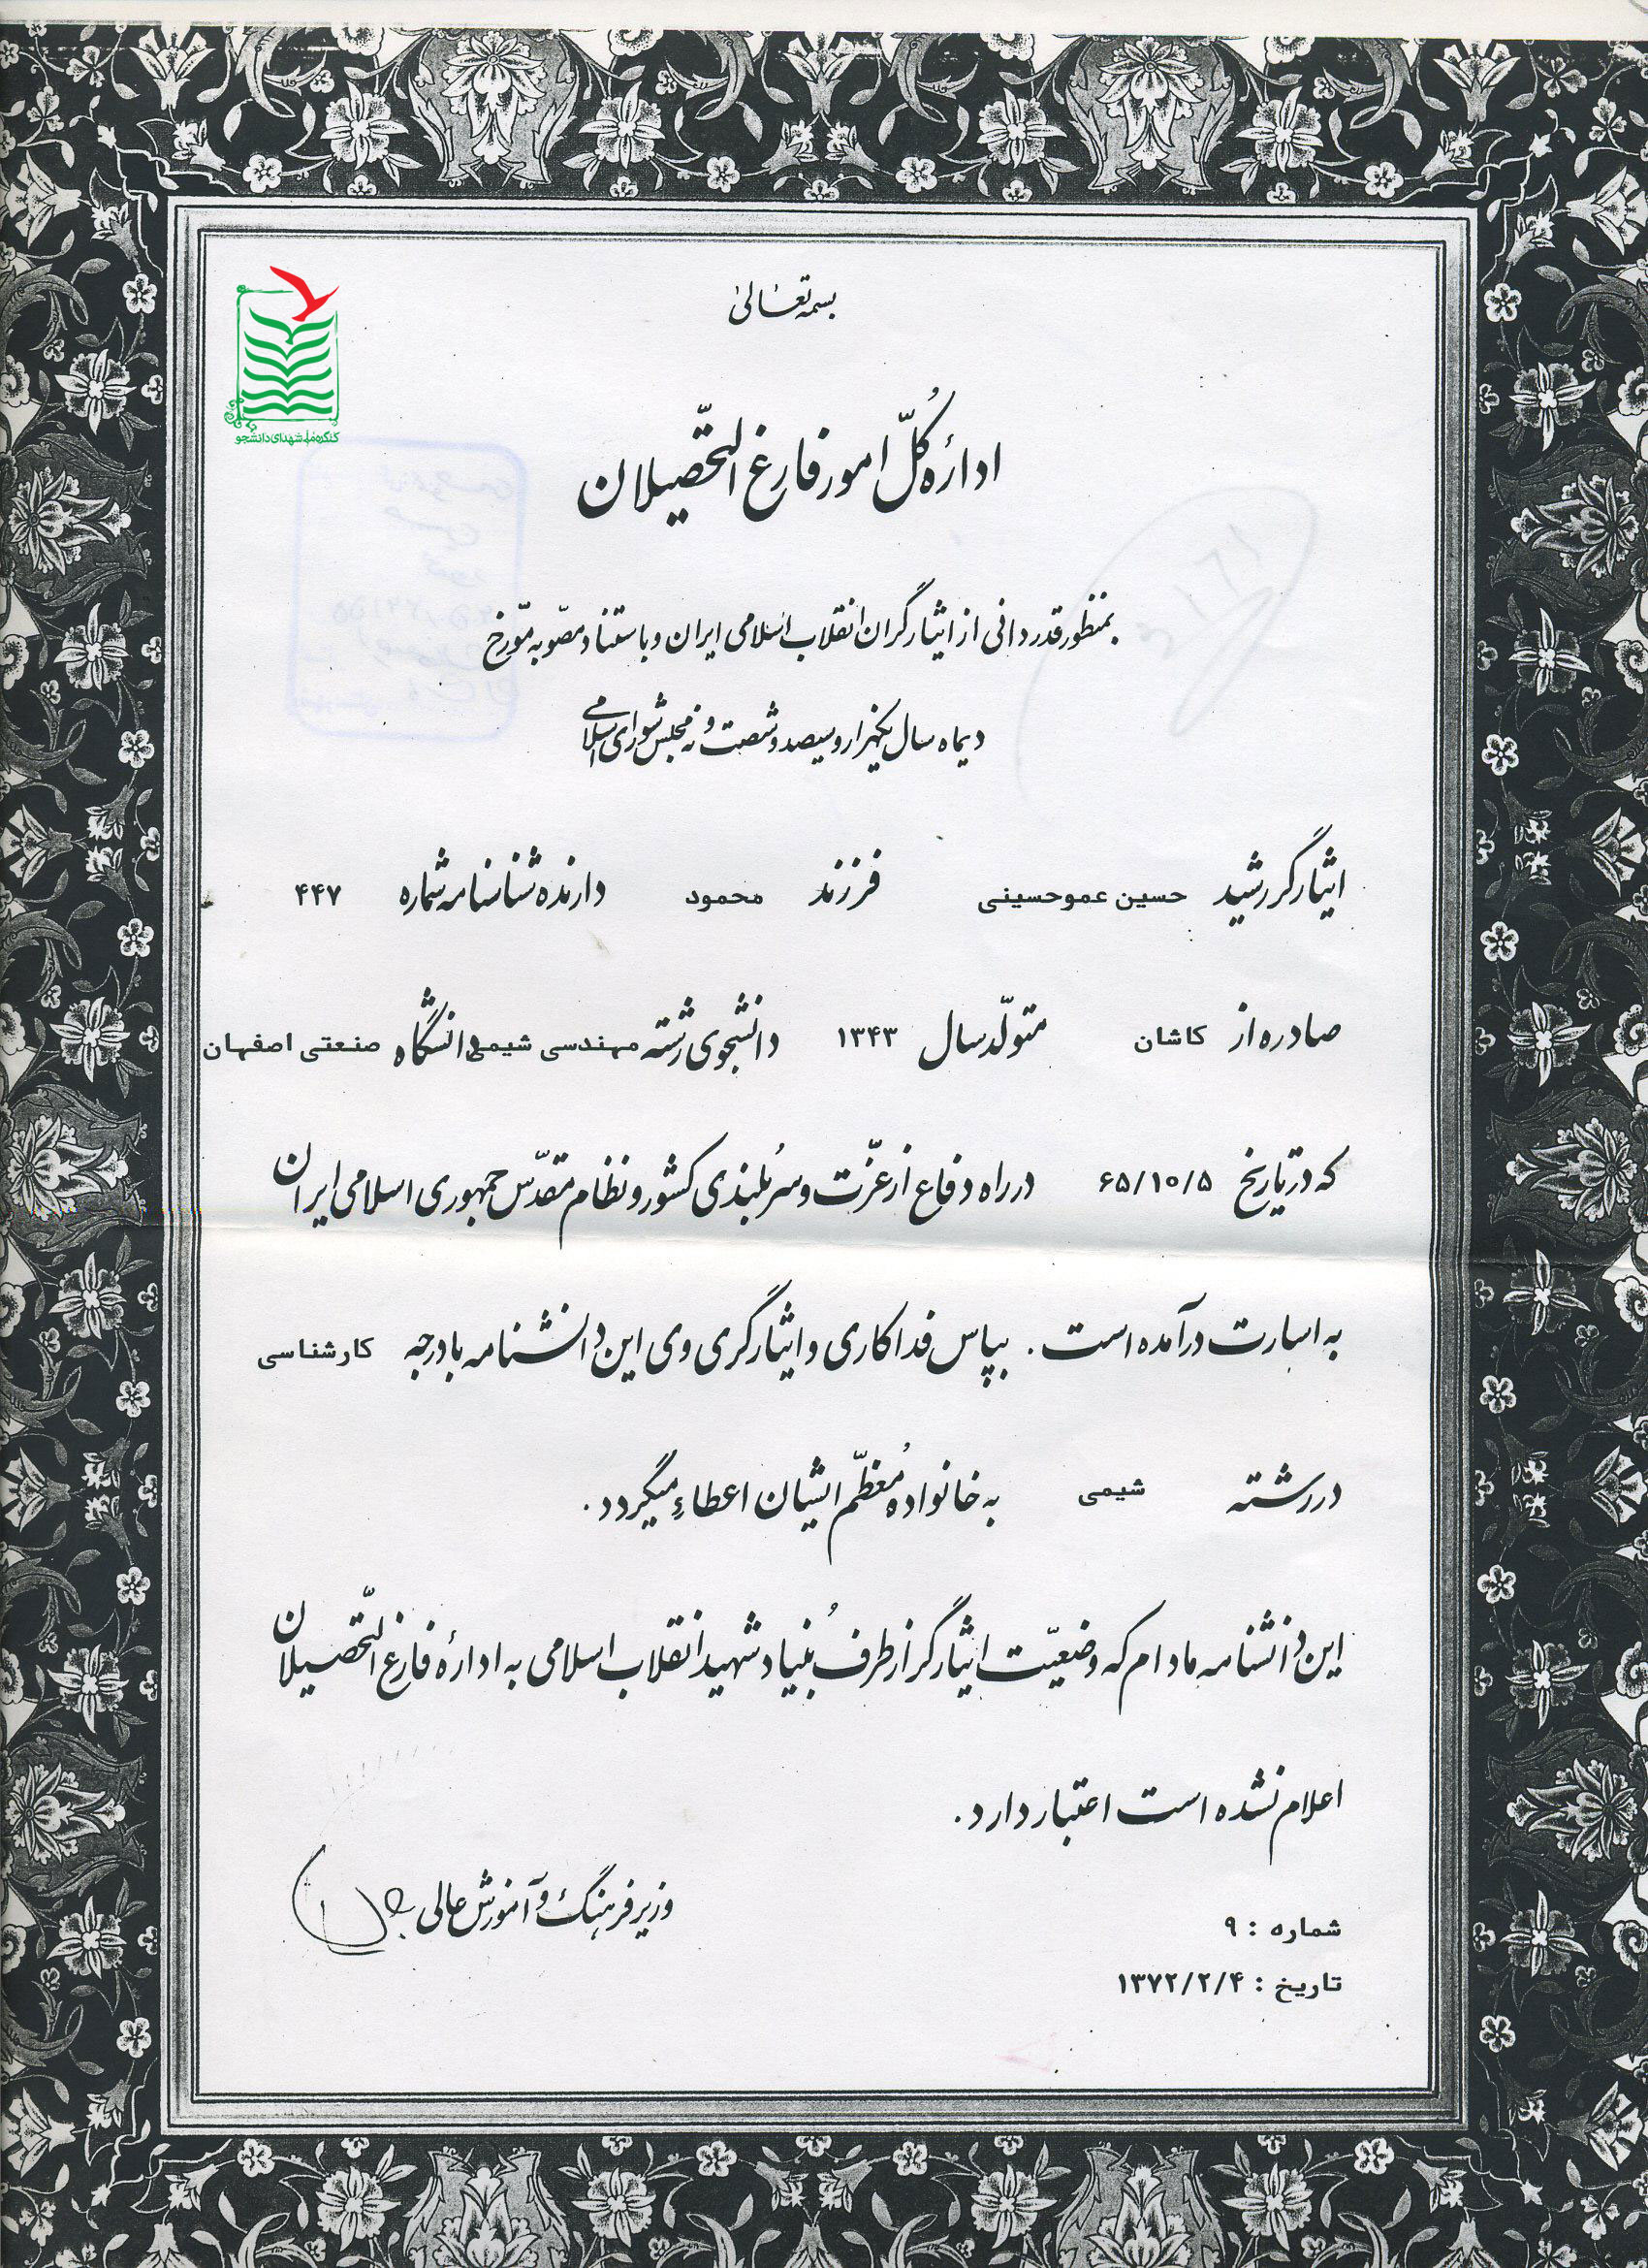 بسمه تعالیٰ
کنگره ملی شهدای دانشجو
ادارهٔ کُلّ امور فارغ التّحصیلان
بمنظور قدردانی از ایثارگران انقلاب اسلامی ایران و با استناد مصوّبه مورّخ
دیماه سال یکهزار و سیصد و شصت و نه مجلس شورای اسلامی
ایثارگر رشید حسین عموحسینی فرزند محمود دارنده شناسنامه شماره ۴۴۷
صادره از کاشان متولّد سال ۱۳۴۳ دانشجوی رشته مهندسی شیمی دانشگاه صنعتی اصفهان
که در تاریخ ۶۵/۱۰/۵ در راه دفاع از عزّت و سربُلندی کشور و نظام مقدّس جمهوری اسلامی ایران
به اسارت درآمده است . بپاس فداکاری و ایثارگری وی این دانشنامه با درجه کارشناسی
در رشته شیمی به خانواده مُعظّم ایشان اعطاء میگردد .
این دانشنامه مادام که وضعیّت ایثارگر از طرف بُنیاد شهید انقلاب اسلامی به ادارهٔ فارغ التّحصیلان
اعلام نشده است اعتبار دارد .
وزیر فرهنگ و آموزش عالی
شماره : ۹
تاریخ : ۱۳۷۲/۲/۴